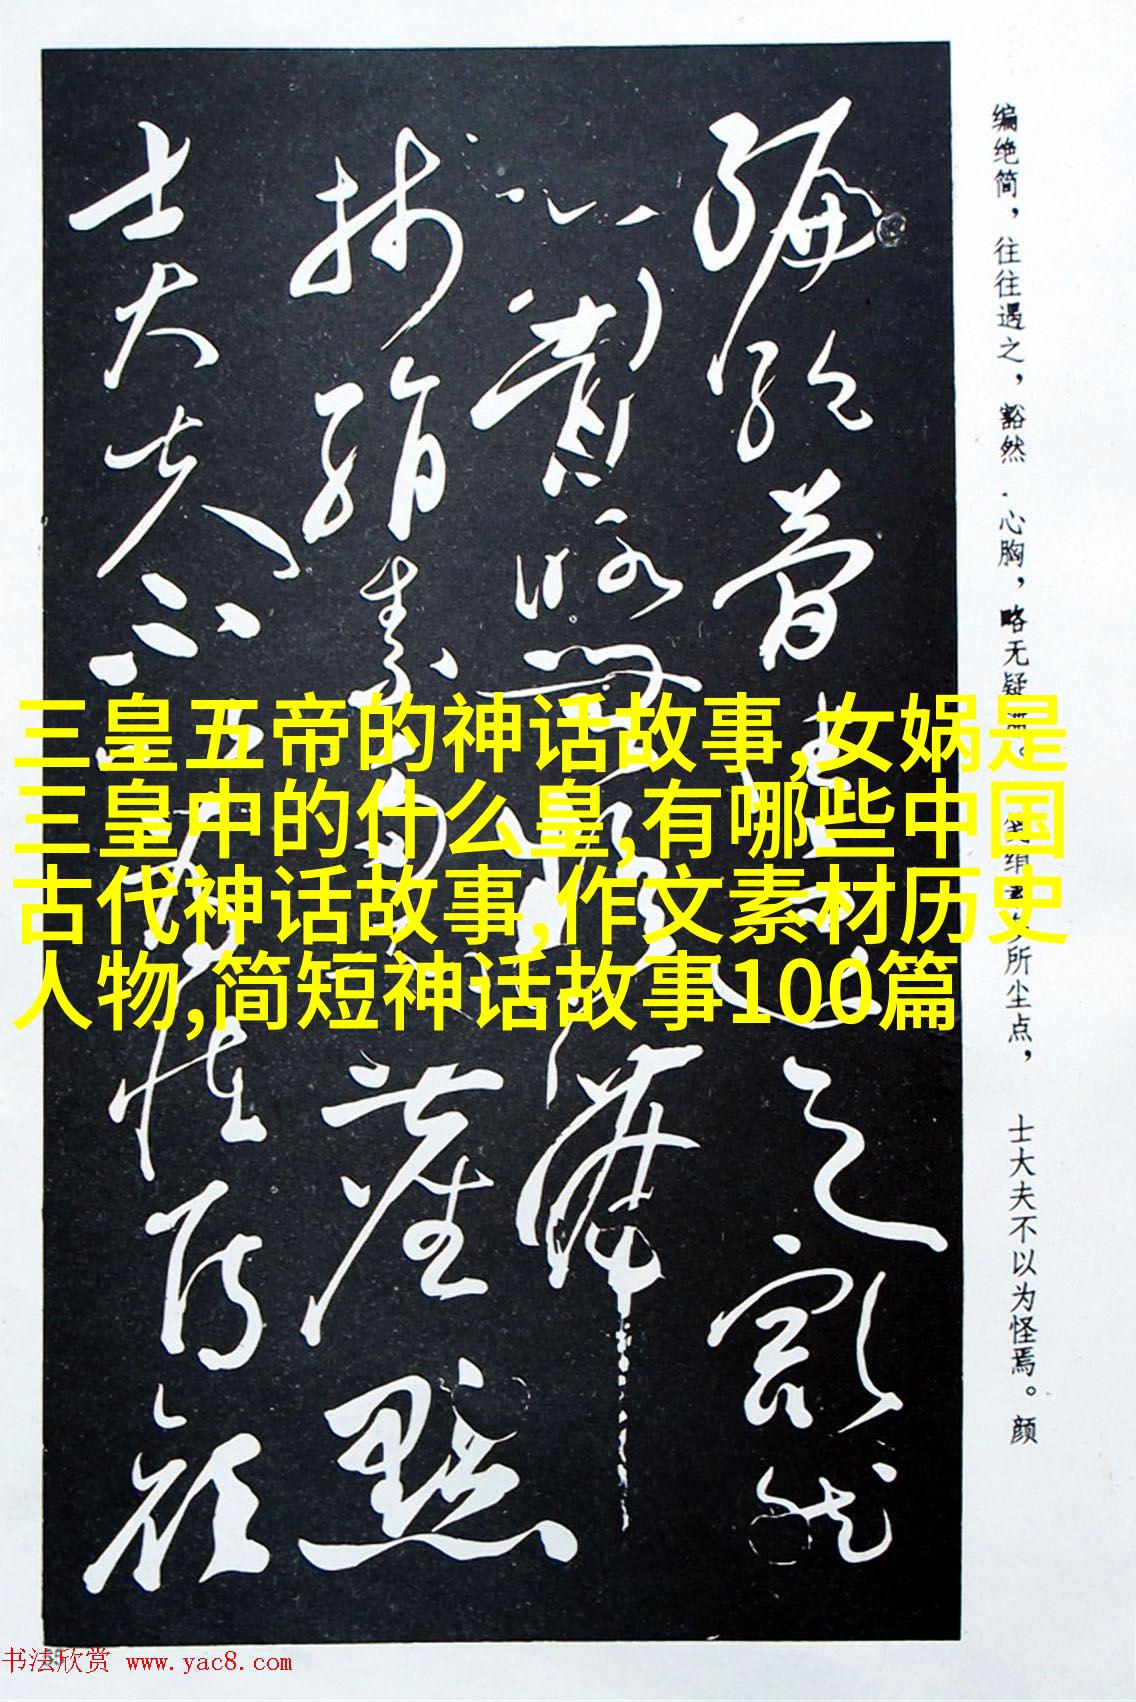 三皇五帝的神话故事,女娲是
三皇中的什么皇,有哪些中国
古代神话故事,作文素材历史
人物,简短神话故事100篇
编绝简，往往遇之，豁然 心胸，略无疑 所尘点， 士大夫不以为怪焉。颜
之豁然
心胸略无疑滞
绢素 尘点
士大夫不 怪焉颜
书法欣赏 www.yac8.com